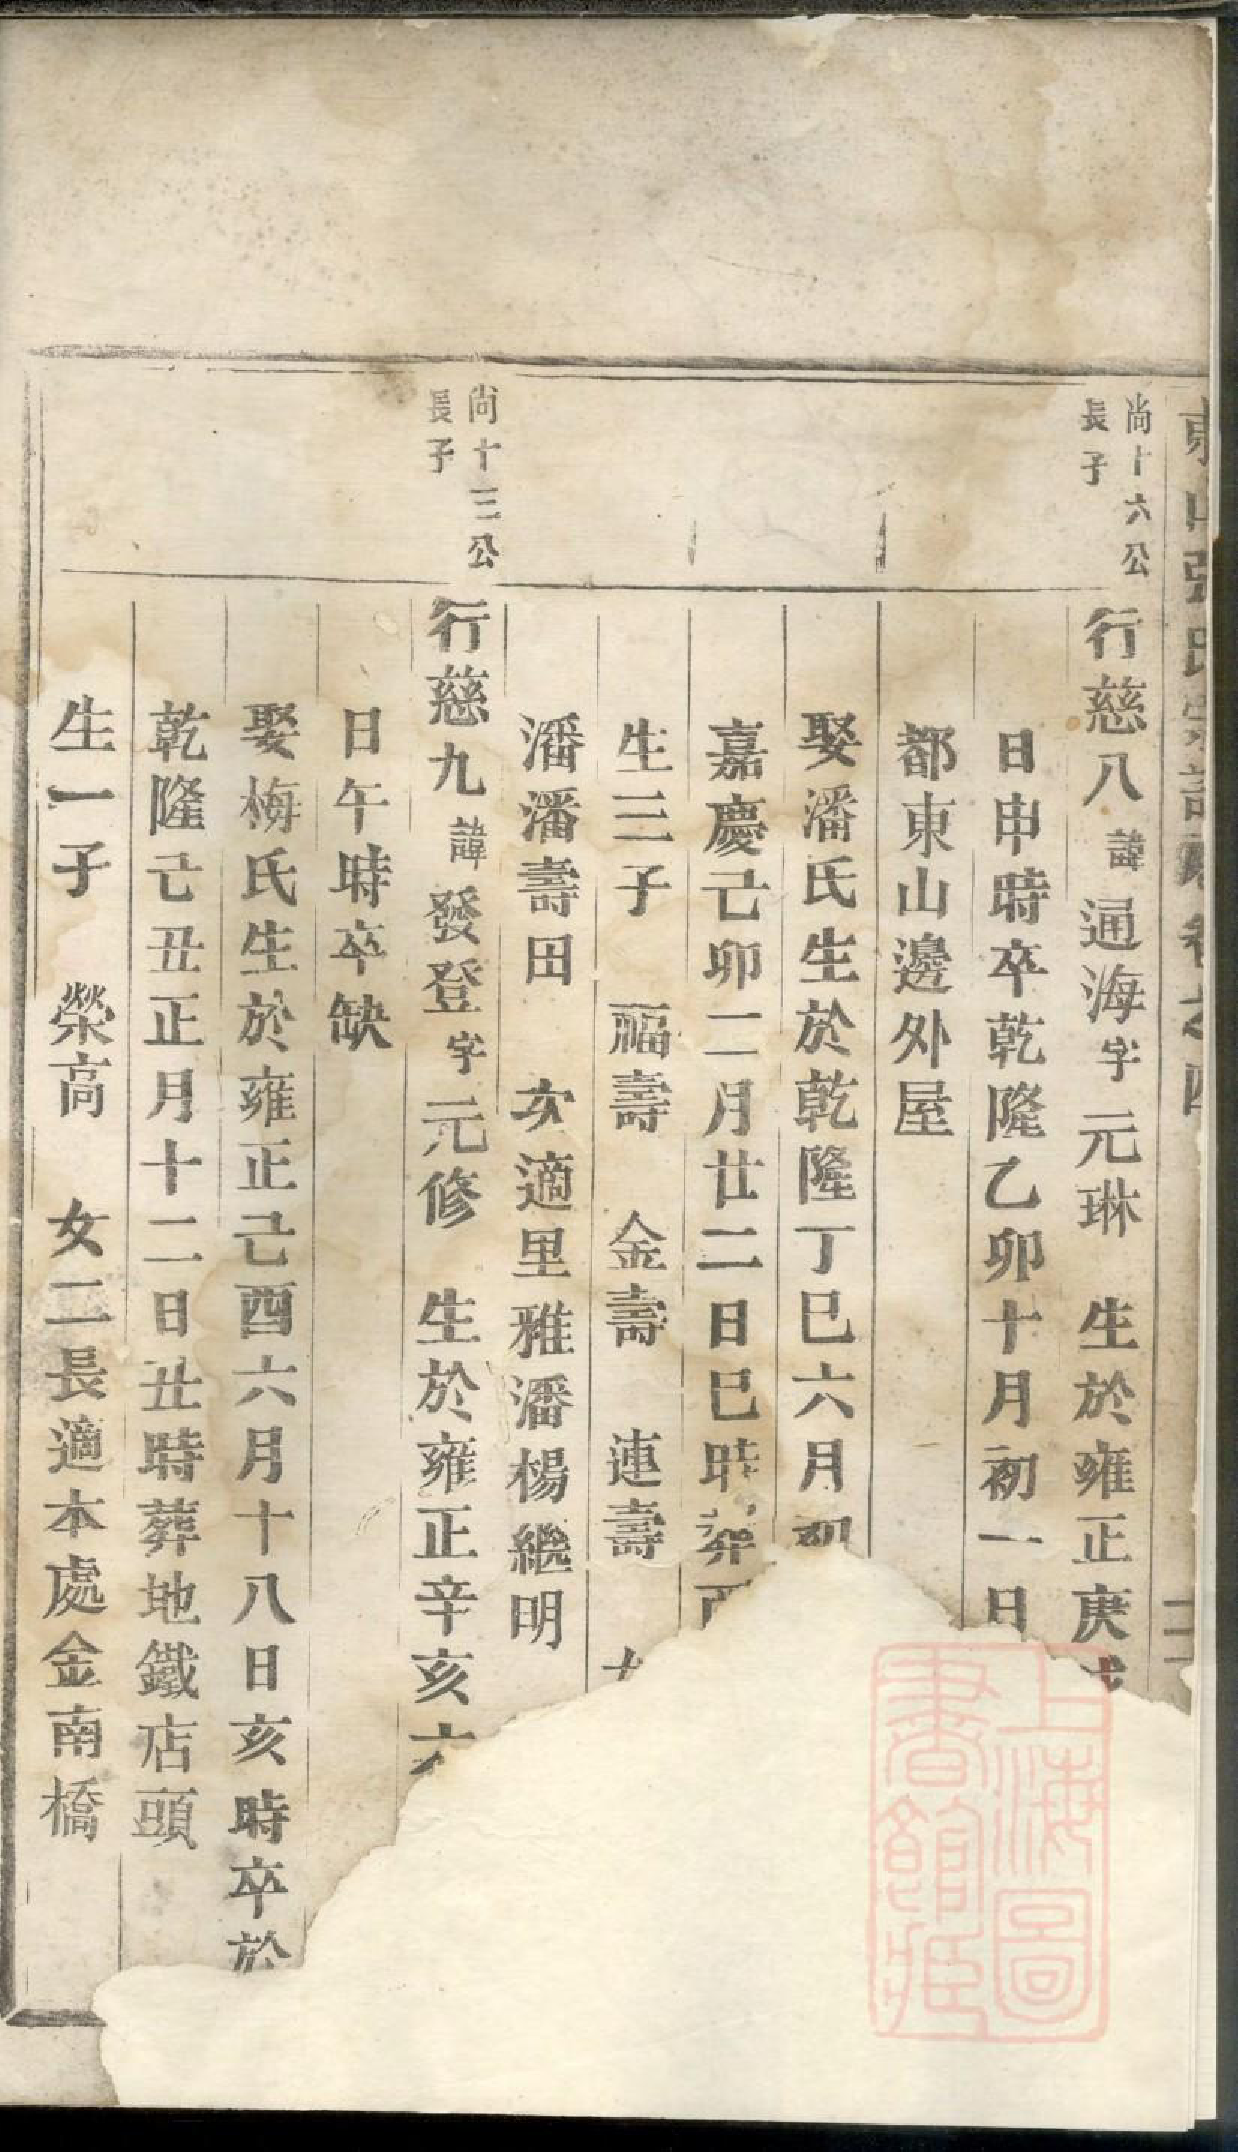 尚十六公
長子
行慈八諱通海字元琳 生於雍正庚
日申時卒乾隆乙卯十月初一日
都東山邊外屋
娶潘氏生於乾隆丁巳六月初
嘉慶己卯二月廿二日巳時葬
生三子 福壽 金壽 連壽
潘潘壽田 次適里雅潘楊繼明
尚十三公
長子
行慈九諱發登字元修 生於雍正辛亥六
日午時卒缺
娶梅氏生於雍正己酉六月十八日亥時卒於
乾隆己丑正月十二日丑時葬地鐵店頭
生一子 榮高 女二長適本處金南橋
上海圖
書館藏